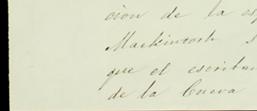 cion de la es
Mackintosh s
que el escriba
de la Cueva